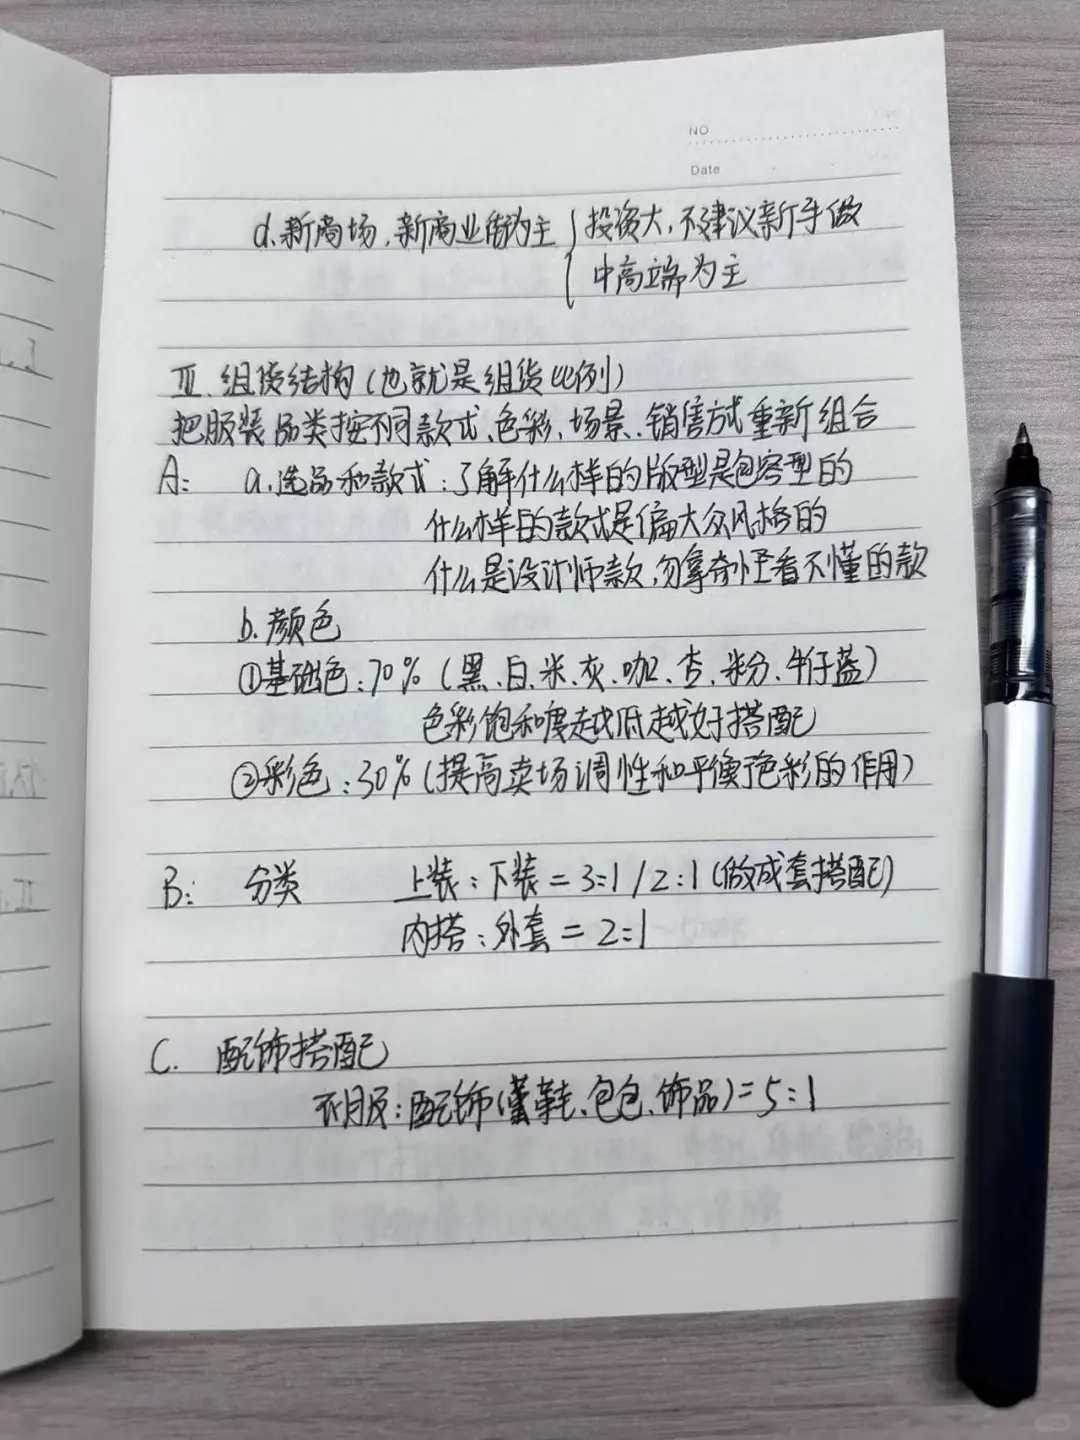 NO
Date
d.新商场,新商业街为主 { 投资大,不建议新手做
中高端为主
III.组货结构(也就是组货比例)
把服装品类按不同款式、色彩、场景、销售方式重新组合
A: a.选品和款式:了解什么样的版型是包容型的
什么样的款式是偏大众风格的
什么是设计师款,勿拿奇怪看不懂的款
b.颜色
①基础色:70%(黑、白、米、灰、咖、杏、粉、牛仔蓝)
色彩饱和度越低越好搭配
②彩色:30%(提高卖场调性和平衡色彩的作用)
B: 分类 上装:下装=3:1/2:1(做成套搭配)
内搭:外套=2:1
C. 配饰搭配
衣服:配饰(鞋、包包、饰品)=5:1